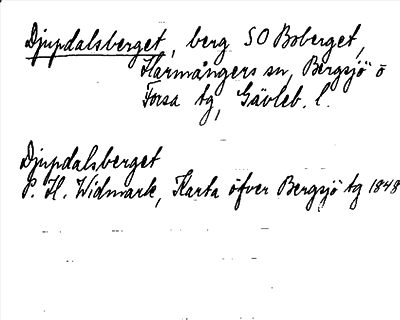 Djupdalsberget, berg SO Boberget,
Harmångers sn, Bergsjö o
Forsa tg, Gävleb. l.
Djupdalsberget
P. H. Widmark, Karta öfver Bergsjö tg 1848